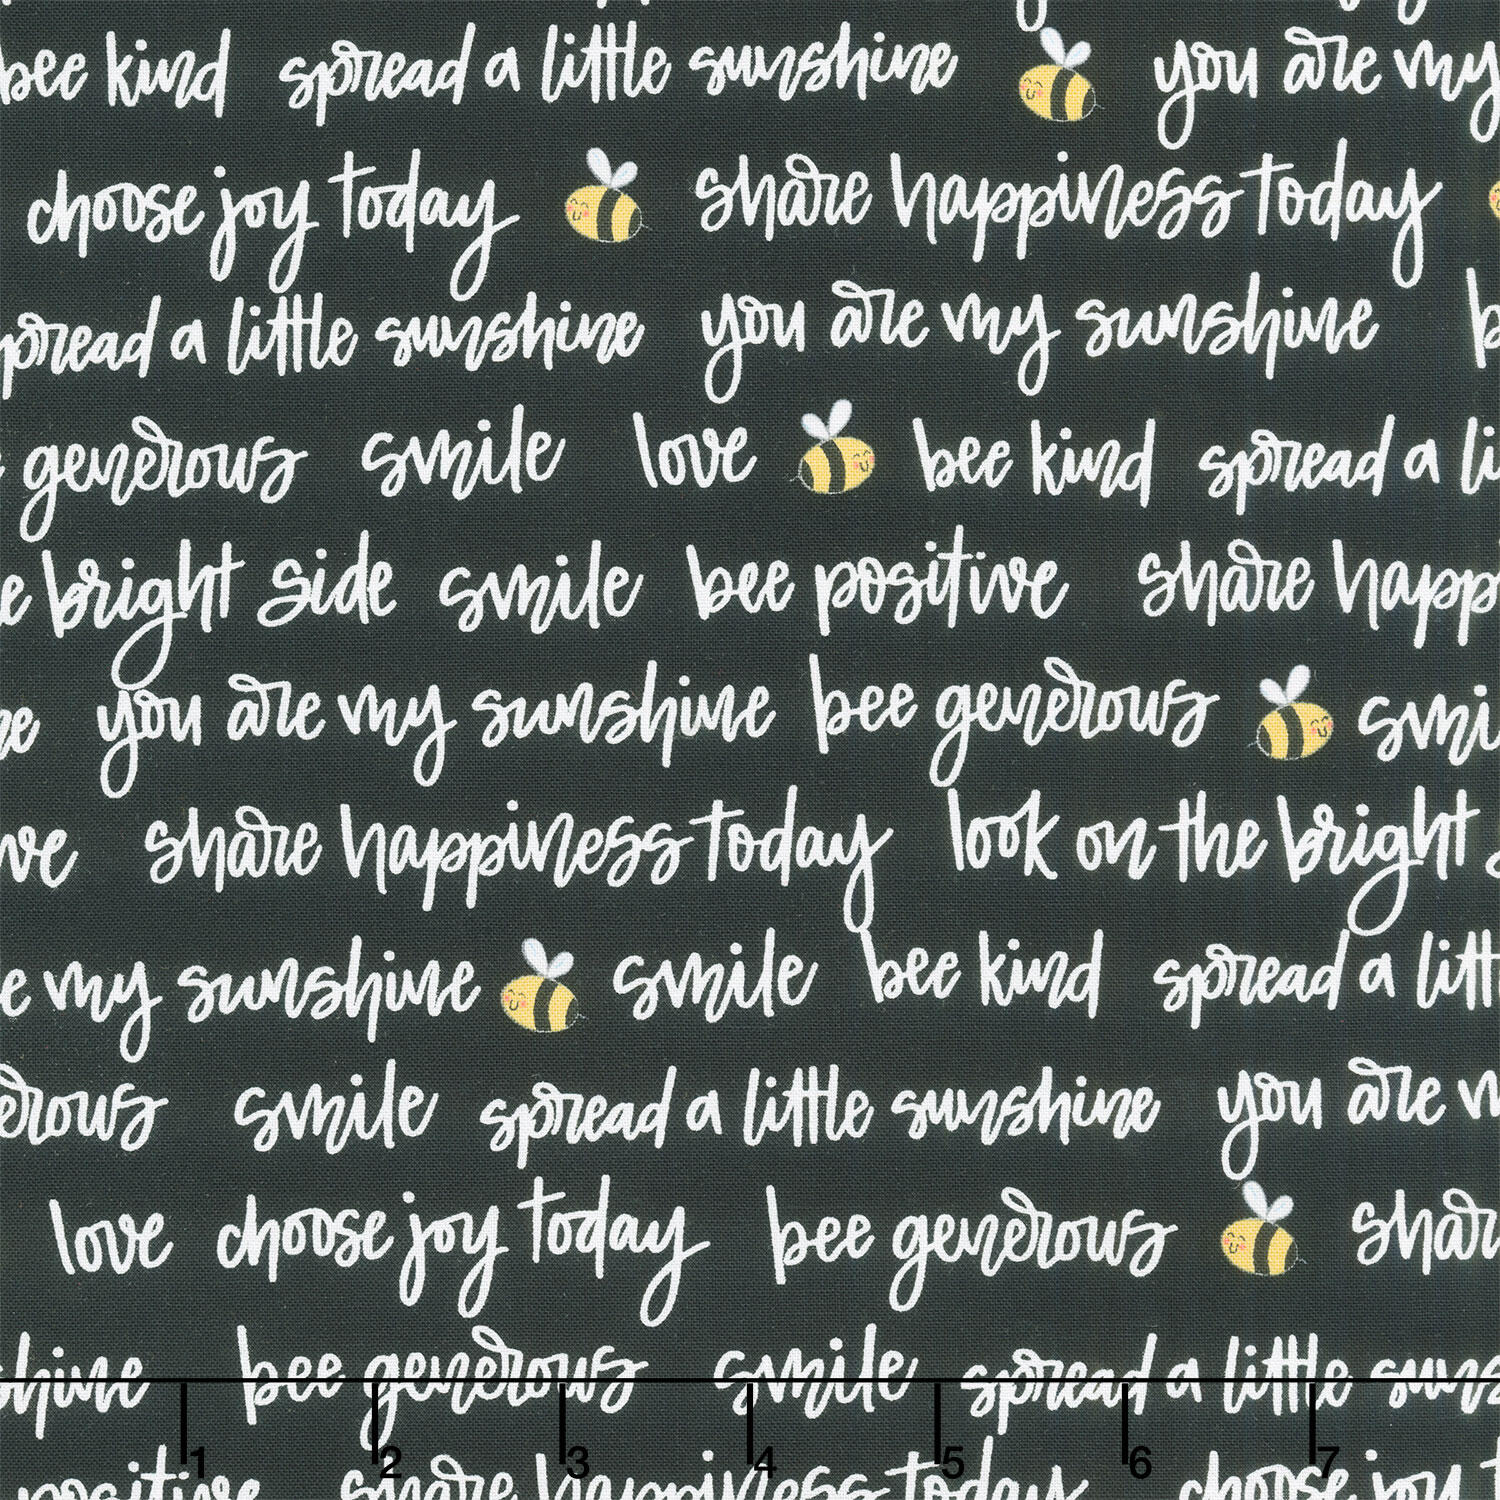 bee kind spread a little sunshine you are my
choose joy today share happiness today
spread a little sunshine you are my sunshine
generous smile love bee kind spread a li
bright side smile bee positive share happ
you are my sunshine bee generous smi
share happiness today look on the bright
e my sunshine smile bee kind spread a litt
erous smile spread a little sunshine you are m
love choose joy today bee generous shar
shine bee generous smile spread a little suns
1 2 3 4 5 6 7
positive share happiness today choose joy t